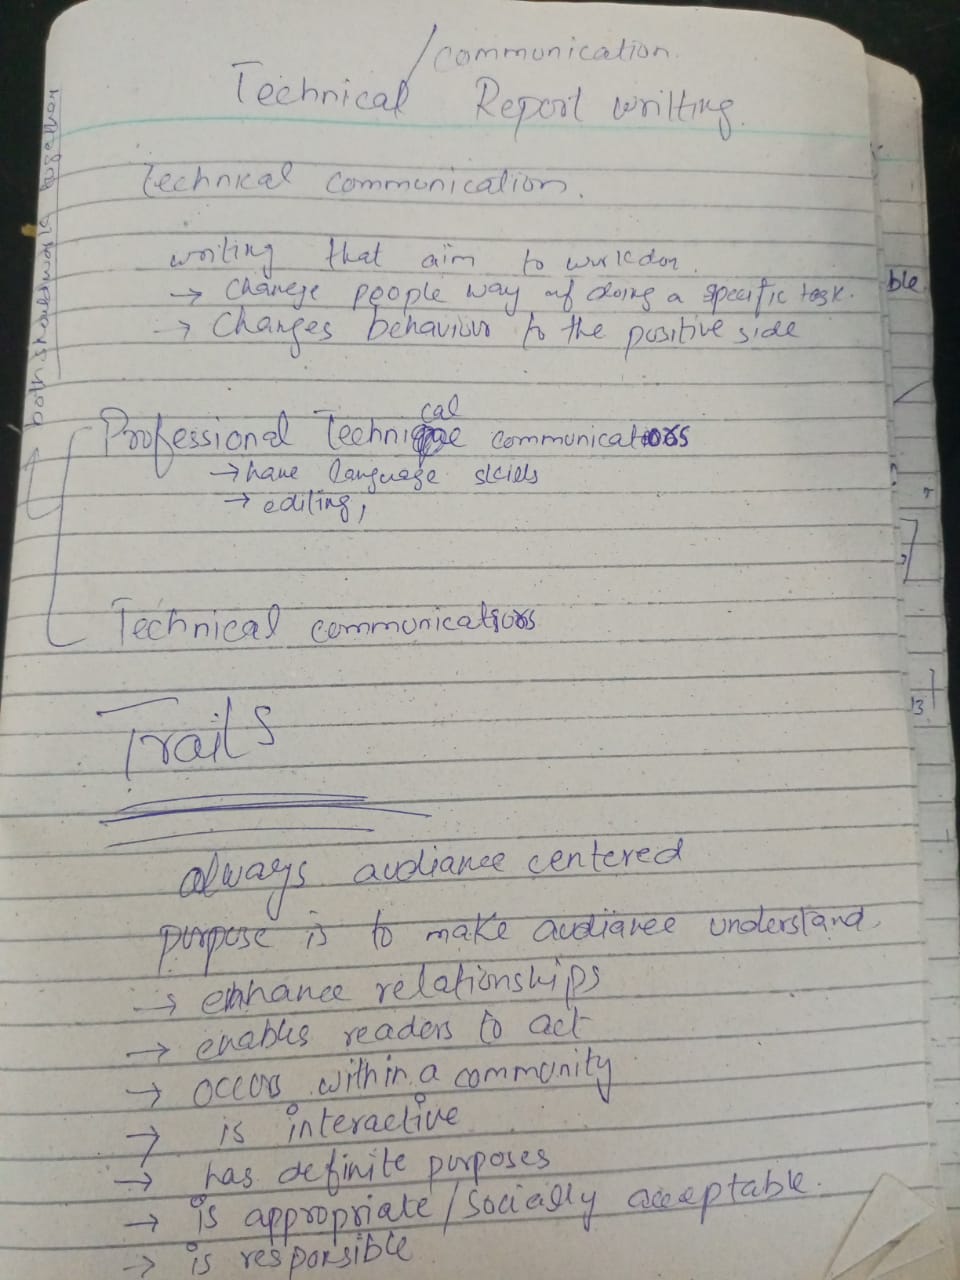 /communication.
Technical Report writting.
Technical communication.
writing that aim to workdon.
→ Change people way of doing a specific task.
→ Changes behaviour to the positive side
both should work together
Professional Technical communicators
→ have language skills
→ editing,
Technical communicators
Traits
always audiance centered
purpose is to make audiance understand.
→ enhance relationships
→ enables readers to act
→ occurs within a community
→ is interactive
→ has definite purposes
→ is appropriate/socially acceptable.
→ is responsible
ble.
13